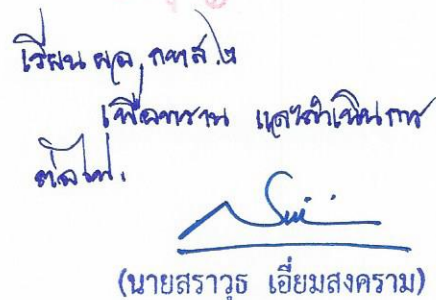 เรียน ผอ. กทส.๒
เพื่อทราบ และดำเนินการ
ต่อไป.
(นายสราวุธ เอี่ยมสงคราม)